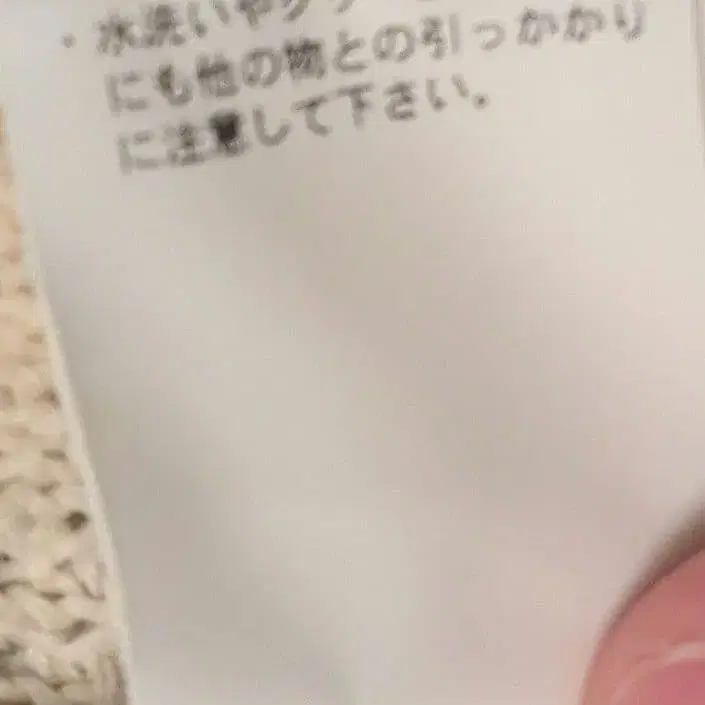 ・水洗いやクリー
にも他の物との引っかかり
に注意して下さい。